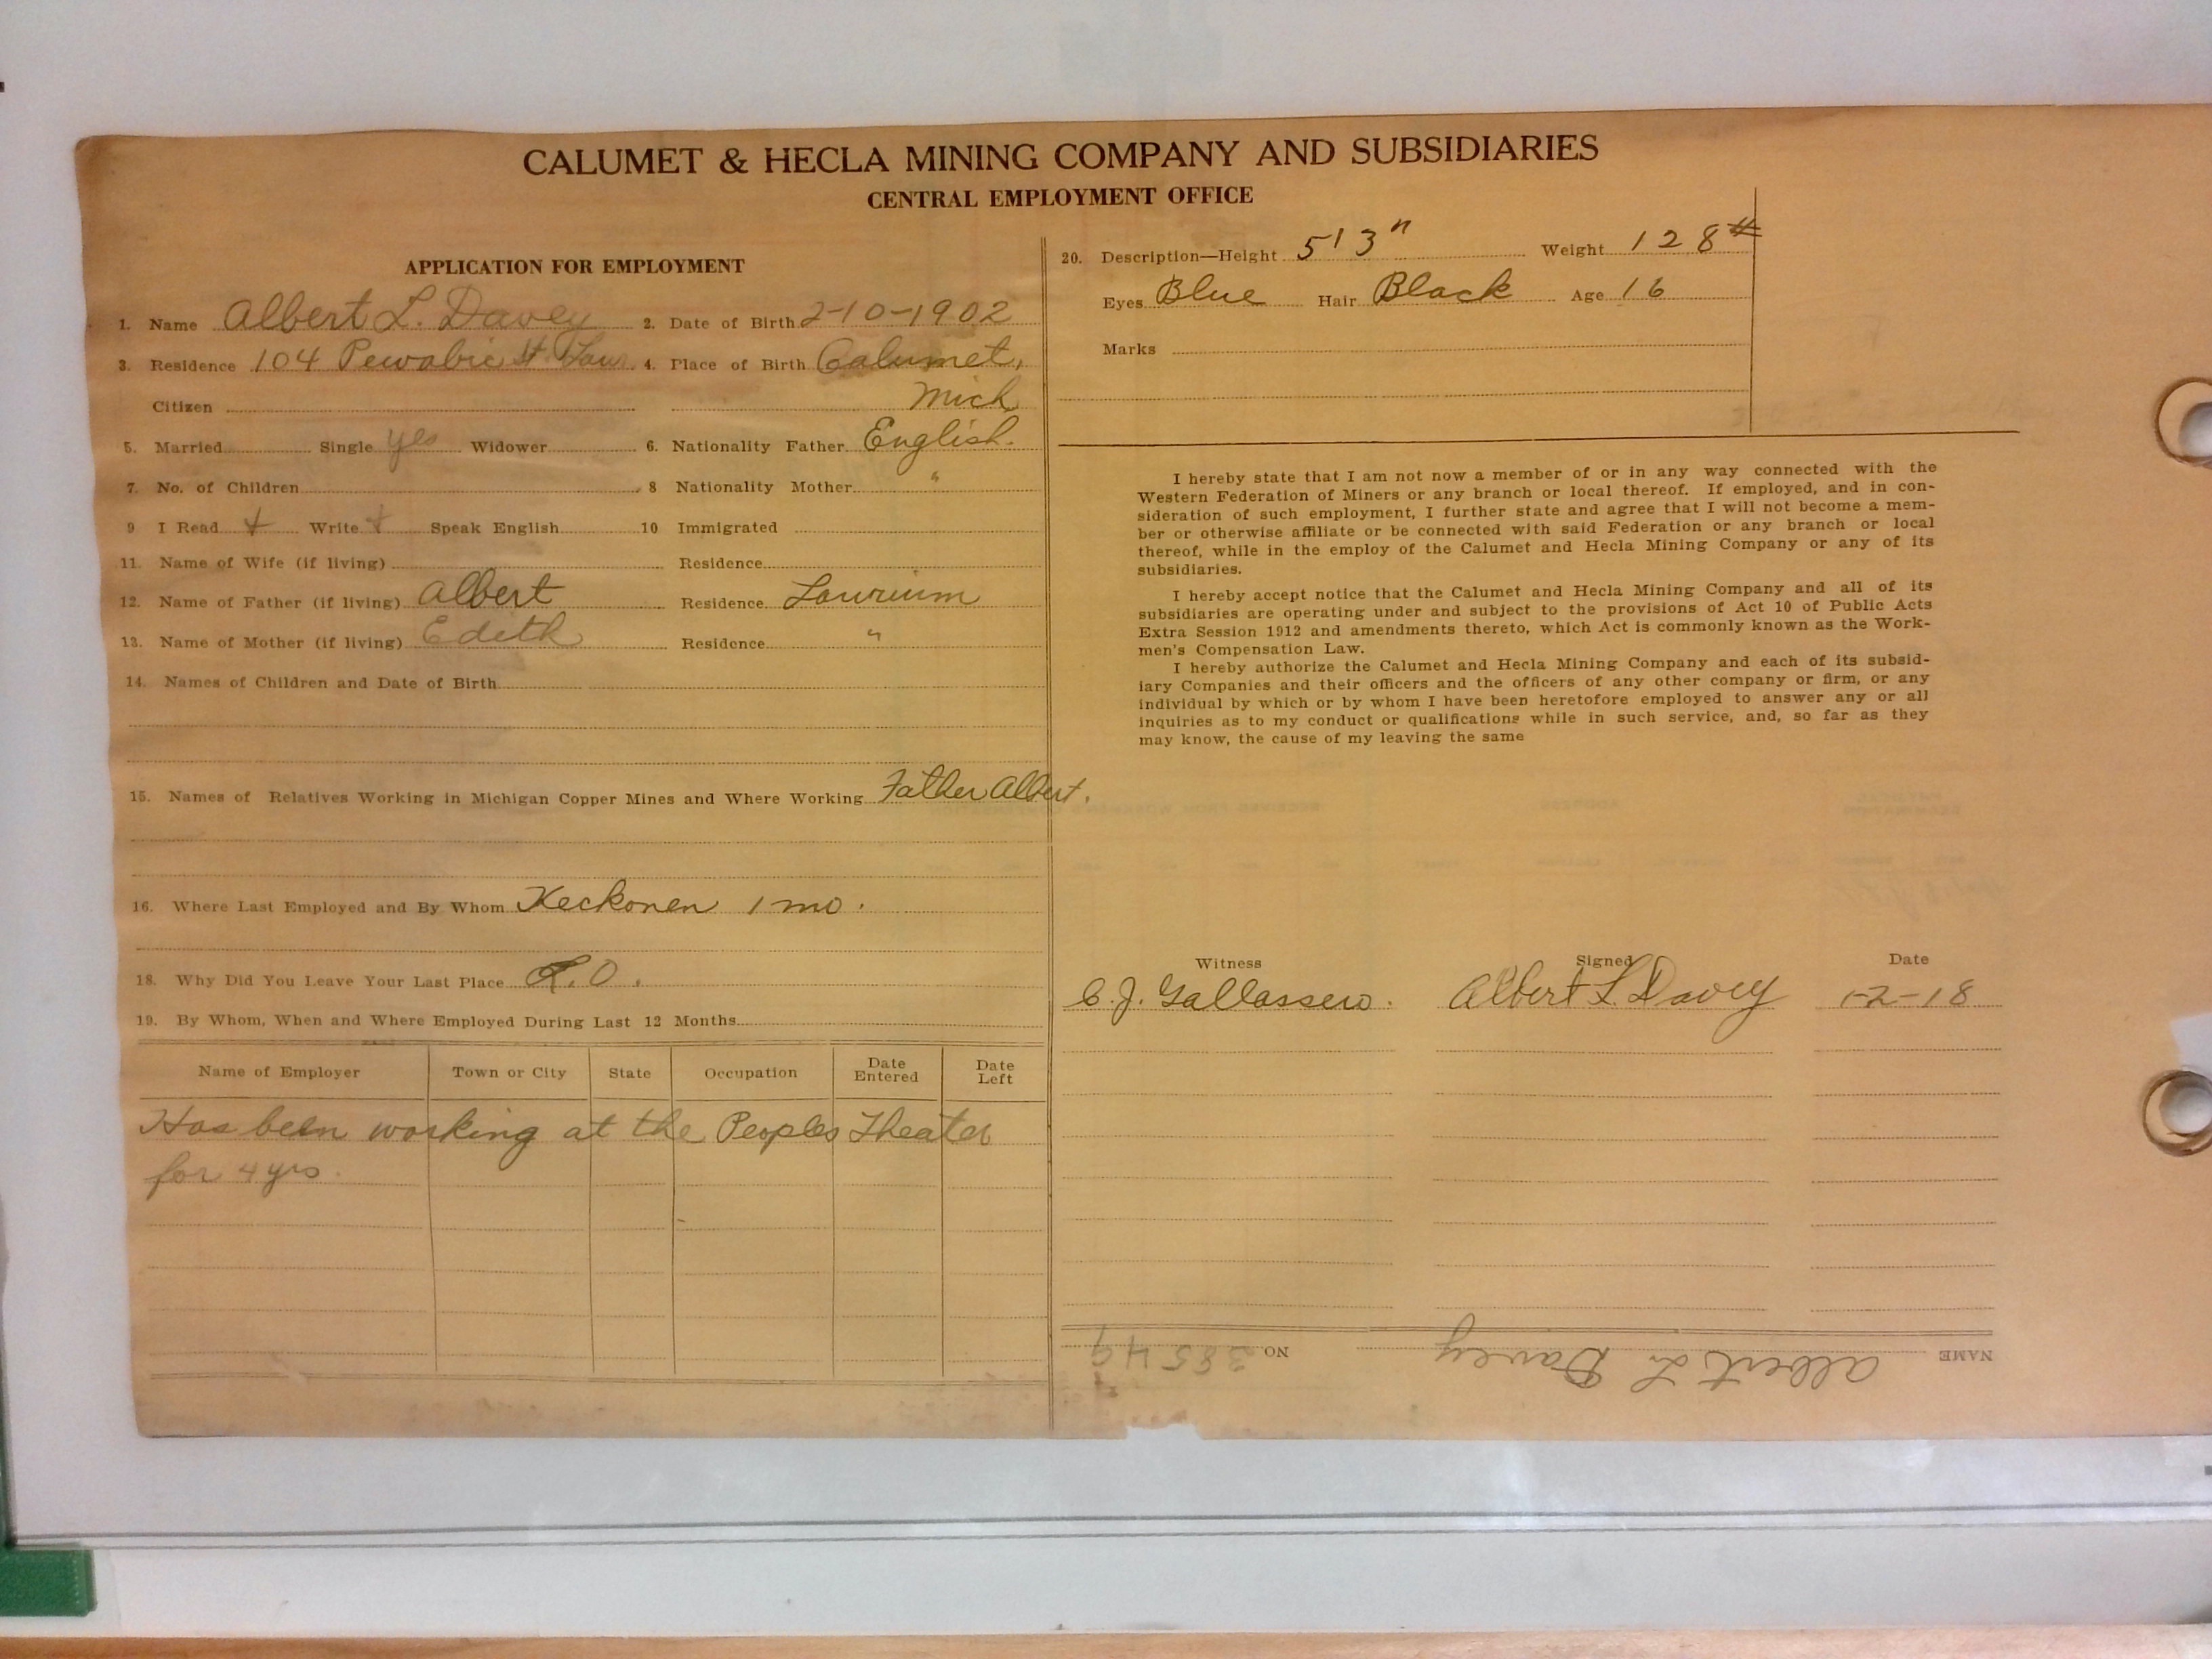 CALUMET & HECLA MINING COMPANY AND SUBSIDIARIES
CENTRAL EMPLOYMENT OFFICE
APPLICATION FOR EMPLOYMENT
1. Name Albert L. Davey 2. Date of Birth 2-10-1902
3. Residence 104 Pewabic St. Laur. 4. Place of Birth Calumet,
Citizen Mich
5. Married Single yes Widower 6. Nationality Father English.
7. No. of Children 8 Nationality Mother "
9 I Read + Write + Speak English 10 Immigrated
11. Name of Wife (if living) Residence
12. Name of Father (if living) Albert Residence Laurium
13. Name of Mother (if living) Edith Residence "
14. Names of Children and Date of Birth
15. Names of Relatives Working in Michigan Copper Mines and Where Working Father Albert.
16. Where Last Employed and By Whom Keckonen 1 mo.
18. Why Did You Leave Your Last Place O.
19. By Whom, When and Where Employed During Last 12 Months
Name of Employer Town or City State Occupation Date Entered Date Left
Has been working at the Peoples Theater
for 4 yrs.
20. Description—Height 5' 3" Weight 128#
Eyes Blue Hair Black Age 16
Marks
I hereby state that I am not now a member of or in any way connected with the
Western Federation of Miners or any branch or local thereof. If employed, and in con-
sideration of such employment, I further state and agree that I will not become a mem-
ber or otherwise affiliate or be connected with said Federation or any branch or local
thereof, while in the employ of the Calumet and Hecla Mining Company or any of its
subsidiaries.
I hereby accept notice that the Calumet and Hecla Mining Company and all of its
subsidiaries are operating under and subject to the provisions of Act 10 of Public Acts
Extra Session 1912 and amendments thereto, which Act is commonly known as the Work-
men's Compensation Law.
I hereby authorize the Calumet and Hecla Mining Company and each of its subsid-
iary Companies and their officers and the officers of any other company or firm, or any
individual by which or by whom I have been heretofore employed to answer any or all
inquiries as to my conduct or qualifications while in such service, and, so far as they
may know, the cause of my leaving the same
Witness Signed Date
C. J. Gallassero. Albert L Davey 1-2-18
NAME Albert L. Davey NO 38549